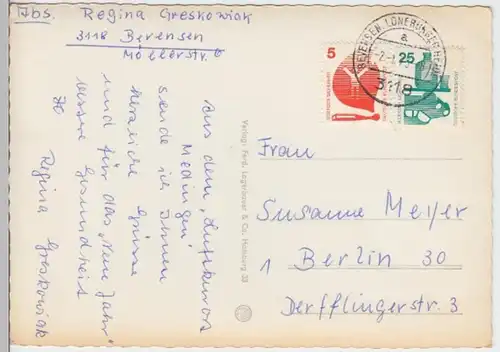 Abs. Regina Greskowiak
3118 Bevensen
Möllerstr. 6
Aus dem „Luftkurort
Medingen“
sende ich Ihnen
herzliche Grüsse
und für das „Neue Jahr“
bessere Gesundheit
Regina Greskowiak
Verlag: Ferd. Lagerbauer & Co. Hamburg 33
5
25
BEVENSEN
a
3118
Frau
Susanne Meyer
1 Berlin 30
Derfflingerstr. 3